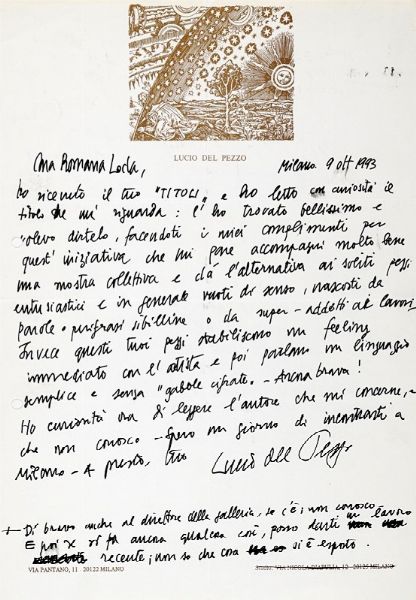 LUCIO DEL PEZZO
Cara Romana Loda, Milano. 9 ott 1993
ho ricevuto il tuo "TITOLI" e ho letto con curiosità il
che mi riguarda: l'ho trovato bellissimo e
volevo dirtelo, facendoti i miei complimenti per
quest'iniziativa che mi pare accompagni molto bene
una mostra collettiva e dà l'alternativa ai soliti pezzi
entusiastici e in generale vuoti di senso, nascosti da
parole sibilline o da super-addetti ai lavori
Invece questi tuoi pezzi stabiliscono un feeling
immediato con l'artista e poi parlano un linguaggio
semplice e senza "gabole cifrate. - Ancora brava!
Ho curiosità ora di leggere l'autore che mi concerne,
che non conosco - Spero un giorno di incontrarti a
Milano - A presto, tuo Lucio del Pezzo
+ Di bravo anche al direttore della galleria, se c'è; non conosco
E poi x si fa ancora qualcosa così, posso darti un lavoro
recente; non so che cosa si è esposto.
VIA PANTANO, 11 - 20122 MILANO Studio: VIA NICOLA D'APULIA, 12 - 20125 MILANO